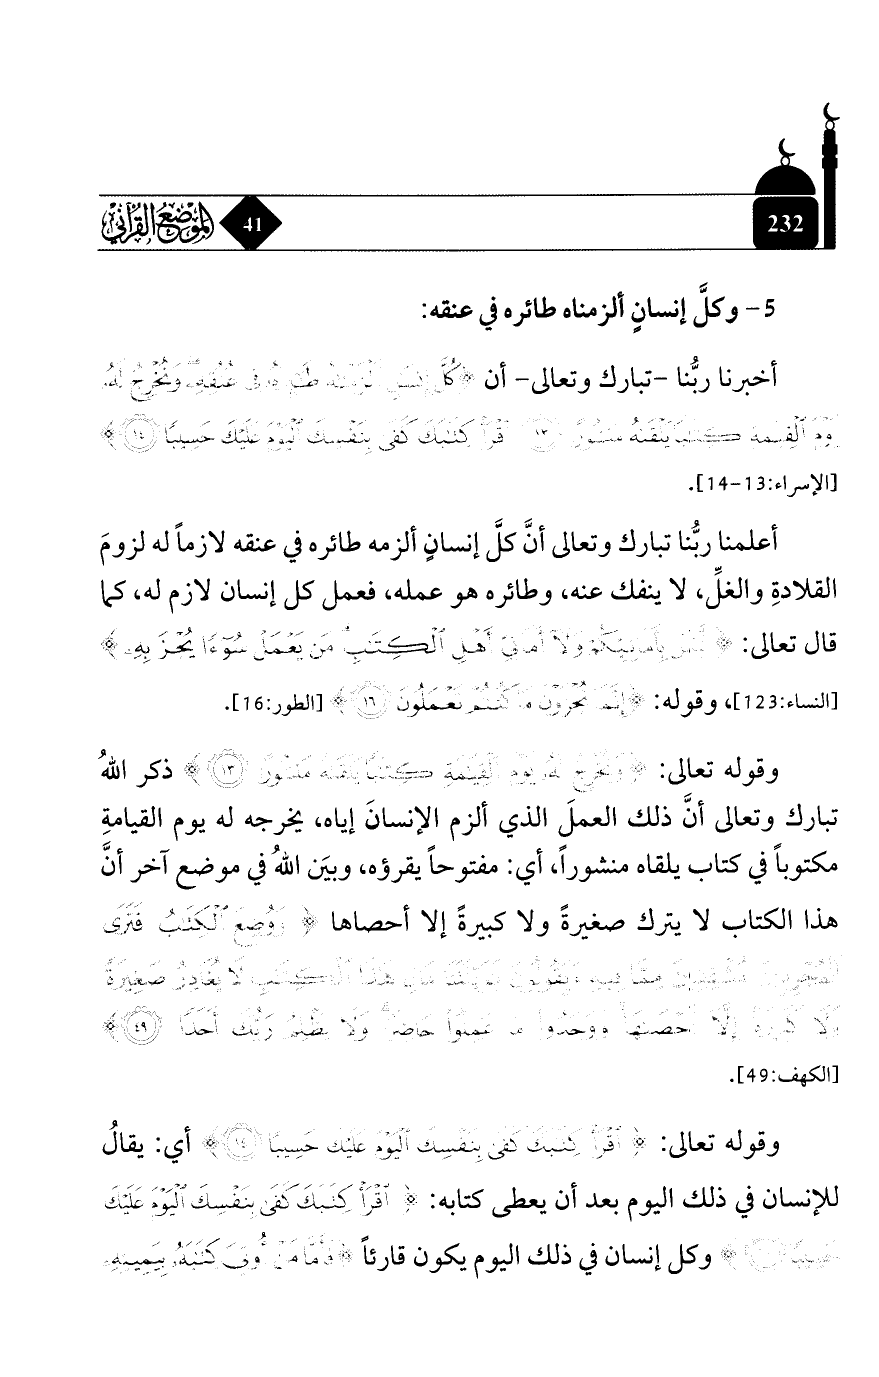 232
41
الموضع القرآني
5 - وكلَّ إنسانٍ ألزمناه طائره في عنقه:
أخبرنا ربُّنا -تبارك وتعالى- أن ﴿كُلَّ إِنسَٰنٍ أَلۡزَمۡنَٰهُ طَٰٓئِرَهُۥ فِي عُنُقِهِۦۖ وَنُخۡرِجُ لَهُۥ
يَوۡمَ ٱلۡقِيَٰمَةِ كِتَٰبٗا يَلۡقَىٰهُ مَنشُورًا ١٣ ٱقۡرَأۡ كِتَٰبَكَ كَفَىٰ بِنَفۡسِكَ ٱلۡيَوۡمَ عَلَيۡكَ حَسِيبٗا ١٤﴾
[الإسراء:13-14].
أعلمنا ربُّنا تبارك وتعالى أنَّ كلَّ إنسانٍ ألزمه طائره في عنقه لازماً له لزومَ
القلادةِ والغلِّ، لا ينفك عنه، وطائره هو عمله، فعمل كل إنسان لازم له، كما
قال تعالى: ﴿لَّيۡسَ بِأَمَانِيِّكُمۡ وَلَآ أَمَانِيِّ أَهۡلِ ٱلۡكِتَٰبِۗ مَن يَعۡمَلۡ سُوٓءٗا يُجۡزَ بِهِۦ﴾
[النساء:123]، وقوله: ﴿إِنَّمَا تُجۡزَوۡنَ مَا كُنتُمۡ تَعۡمَلُونَ ١٦﴾ [الطور:16].
وقوله تعالى: ﴿وَنُخۡرِجُ لَهُۥ يَوۡمَ ٱلۡقِيَٰمَةِ كِتَٰبٗا يَلۡقَىٰهُ مَنشُورًا ١٣﴾ ذكر اللهُ
تبارك وتعالى أنَّ ذلك العملَ الذي ألزم الإنسانَ إياه، يخرجه له يوم القيامةِ
مكتوباً في كتاب يلقاه منشوراً، أي: مفتوحاً يقرؤه، وبيَن اللهُ في موضع آخر أنَّ
هذا الكتاب لا يترك صغيرةً ولا كبيرةً إلا أحصاها ﴿وَوُضِعَ ٱلۡكِتَٰبُ فَتَرَى
ٱلۡمُجۡرِمِينَ مُشۡفِقِينَ مِمَّا فِيهِ وَيَقُولُونَ يَٰوَيۡلَتَنَا مَالِ هَٰذَا ٱلۡكِتَٰبِ لَا يُغَادِرُ صَغِيرَةٗ
وَلَا كَبِيرَةً إِلَّآ أَحۡصَىٰهَاۚ وَوَجَدُواْ مَا عَمِلُواْ حَاضِرٗاۗ وَلَا يَظۡلِمُ رَبُّكَ أَحَدٗا ٤٩﴾
[الكهف:49].
وقوله تعالى: ﴿ٱقۡرَأۡ كِتَٰبَكَ كَفَىٰ بِنَفۡسِكَ ٱلۡيَوۡمَ عَلَيۡكَ حَسِيبٗا ١٤﴾ أي: يقالُ
للإنسان في ذلك اليوم بعد أن يعطى كتابه: ﴿ٱقۡرَأۡ كِتَٰبَكَ كَفَىٰ بِنَفۡسِكَ ٱلۡيَوۡمَ عَلَيۡكَ
حَسِيبٗا ١٤﴾ وكل إنسان في ذلك اليوم يكون قارئاً ﴿فَأَمَّا مَنۡ أُوتِيَ كِتَٰبَهُۥ بِيَمِينِهِۦ